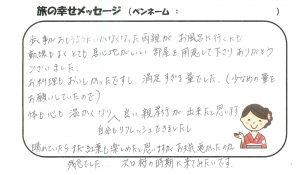 旅の幸せメッセージ (ペンネーム : )
歩く事がおもうようにいかなくなった両親が お風呂に行くにも
動線もよく とても 居心地がいい 部屋を用意して下さり ありがとう
ございました。
お料理もおいしかったですし、満足すぎる量でした。(少なめの量を
お願いしていたので)
体も心も 温かくなり 良い 親孝行が 出来たと思います
自分もリフレッシュできましたし
晴れていたらまだ紅葉も楽しめたと思いますが お天気悪かったのが
残念でした 次は桜の時期に来てみたいです。